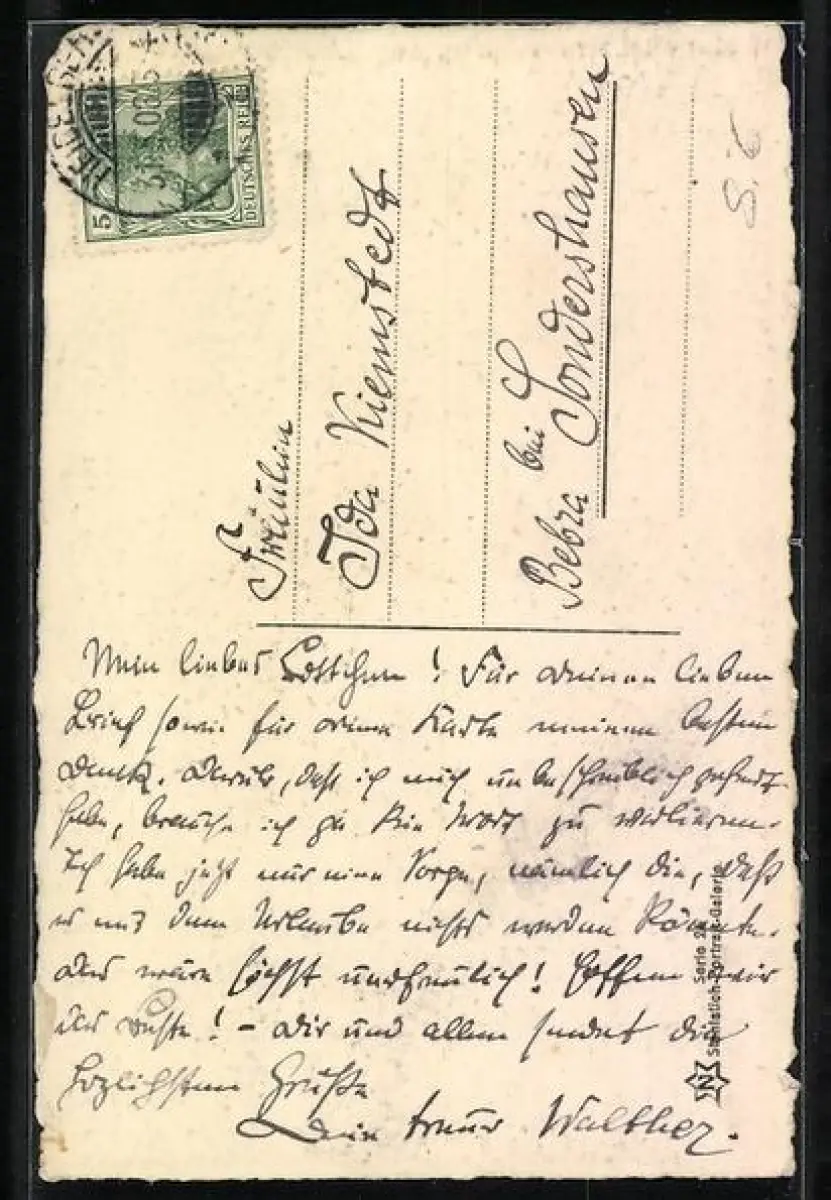 HEIDELBERG
5
DEUTSCHES REICH
Fräulein
Ida Kiemstedt
Bebra bei
Sondershausen
S. 6
Mein liebes Lottchen! Für deinen lieben
Brief sowie für deine Karte meinen besten
Dank. Darüber, daß ich mich unbeschreiblich gefreut
habe, brauche ich ja kein Wort zu verlieren.
Ich habe jetzt nur eine Sorge, nämlich die, daß
es mit dem Urlaube nichts werden könnte.
Das wäre höchst unerfreulich! Hoffen wir
das Beste! – Dir und allen sendet die
herzlichsten Grüße
Dein treuer Walther.
Serie
Portrait-Galerie